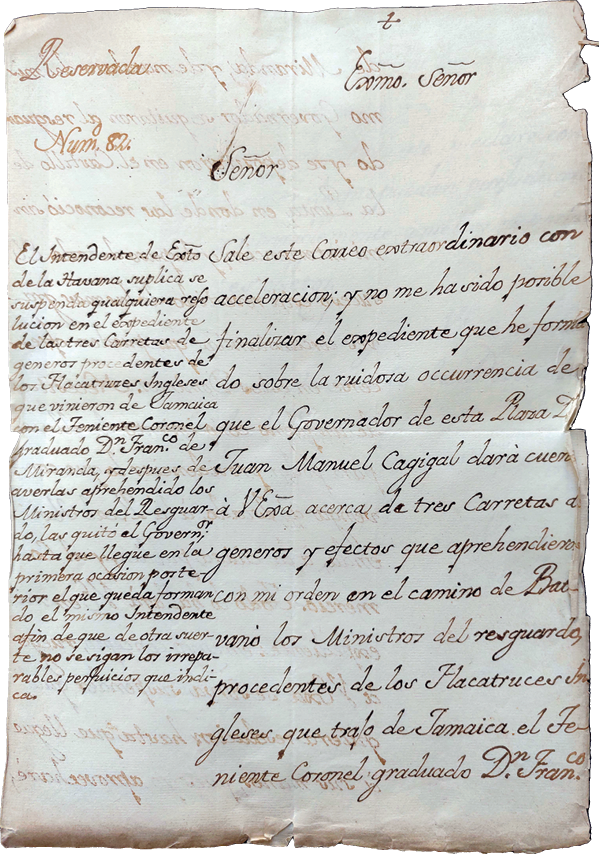 +
Reservada
Exmo. Señor
Num. 82.
Señor
El Intendente de Exto
de la Havana suplica se
suspenda qualquiera reso
lucion en el expediente
de las tres Carretas de
generos procedentes de
los Flacatruzes Ingleses
que vinieron de Jamaica
con el Teniente Coronel
graduado Dn. Franco. de
Miranda, y despues de
averlas aprehendido los
Ministros del Resguar-
do, las quitó el Governor.
hasta que llegue en la
primera ocasion poste
rior el que queda forman
do el mismo Intendente
afin de que de otra suer-
te no se sigan los irrepa-
rables perjuicios que indi-
ca.
Sale este Correo extraordinario con
acceleracion; y no me ha sido posible
finalizar el expediente que he forma
do sobre la ruidosa occurrencia de
que el Governador de esta Plaza D.
Juan Manuel Cagigal dará cuen
à VExa acerca de tres Carretas d
generos y efectos que aprehendieron
con mi orden en el camino de Bat-
vanó los Ministros del resguardo,
procedentes de los Flacatruces In
gleses que trajo de Jamaica el Te-
niente Coronel graduado Dn. Franco.